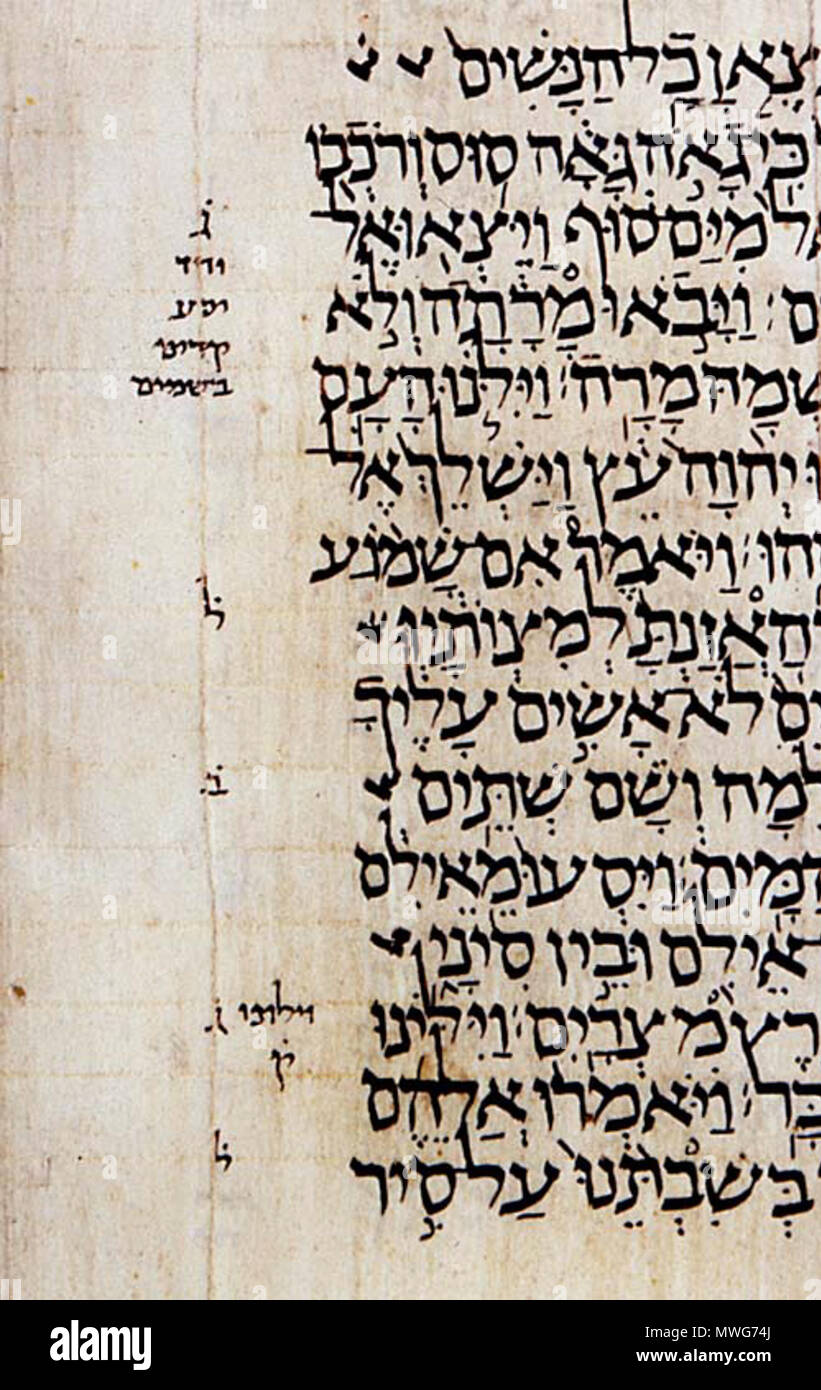 צֶאןָ כָל הַנָּשִׁים
כִּי גָאֹה גָּאָה סוּס וְרֹכְבוֹ
מִיַּם סוּף וַיֵּצְאוּ אֶל
ם׃ וַיָּבֹאוּ מָרָתָה וְלֹא
שְׁמָהּ מָרָה׃ וַיִּלֹּנוּ הָעָם
יְהוָה עֵץ וַיַּשְׁלֵךְ אֶל
הוּ׃ וַיֹּאמֶר אִם שָׁמוֹעַ
הַאֲזַנְתָּ לְמִצְוֹתָיו
ים לֹא אָשִׂים עָלֶיךָ
לִמָה וְשָׁם שְׁתֵּים
הַמָּיִם׃ וַיִּסְעוּ מֵאֵילִם
אֵילִם וּבֵין סִינָי
רֶץ מִצְרָיִם׃ וַיִּלִּינוּ
בָּר׃ וַיֹּאמְרוּ אֲלֵהֶם
בְּשִׁבְתֵּנוּ עַל סִיר
ג̇
בשמים
ל̇
ב̇
ג̇ וילונו
ק̇
ל̇
alamy
Image ID: MWG74J
www.alamy.com